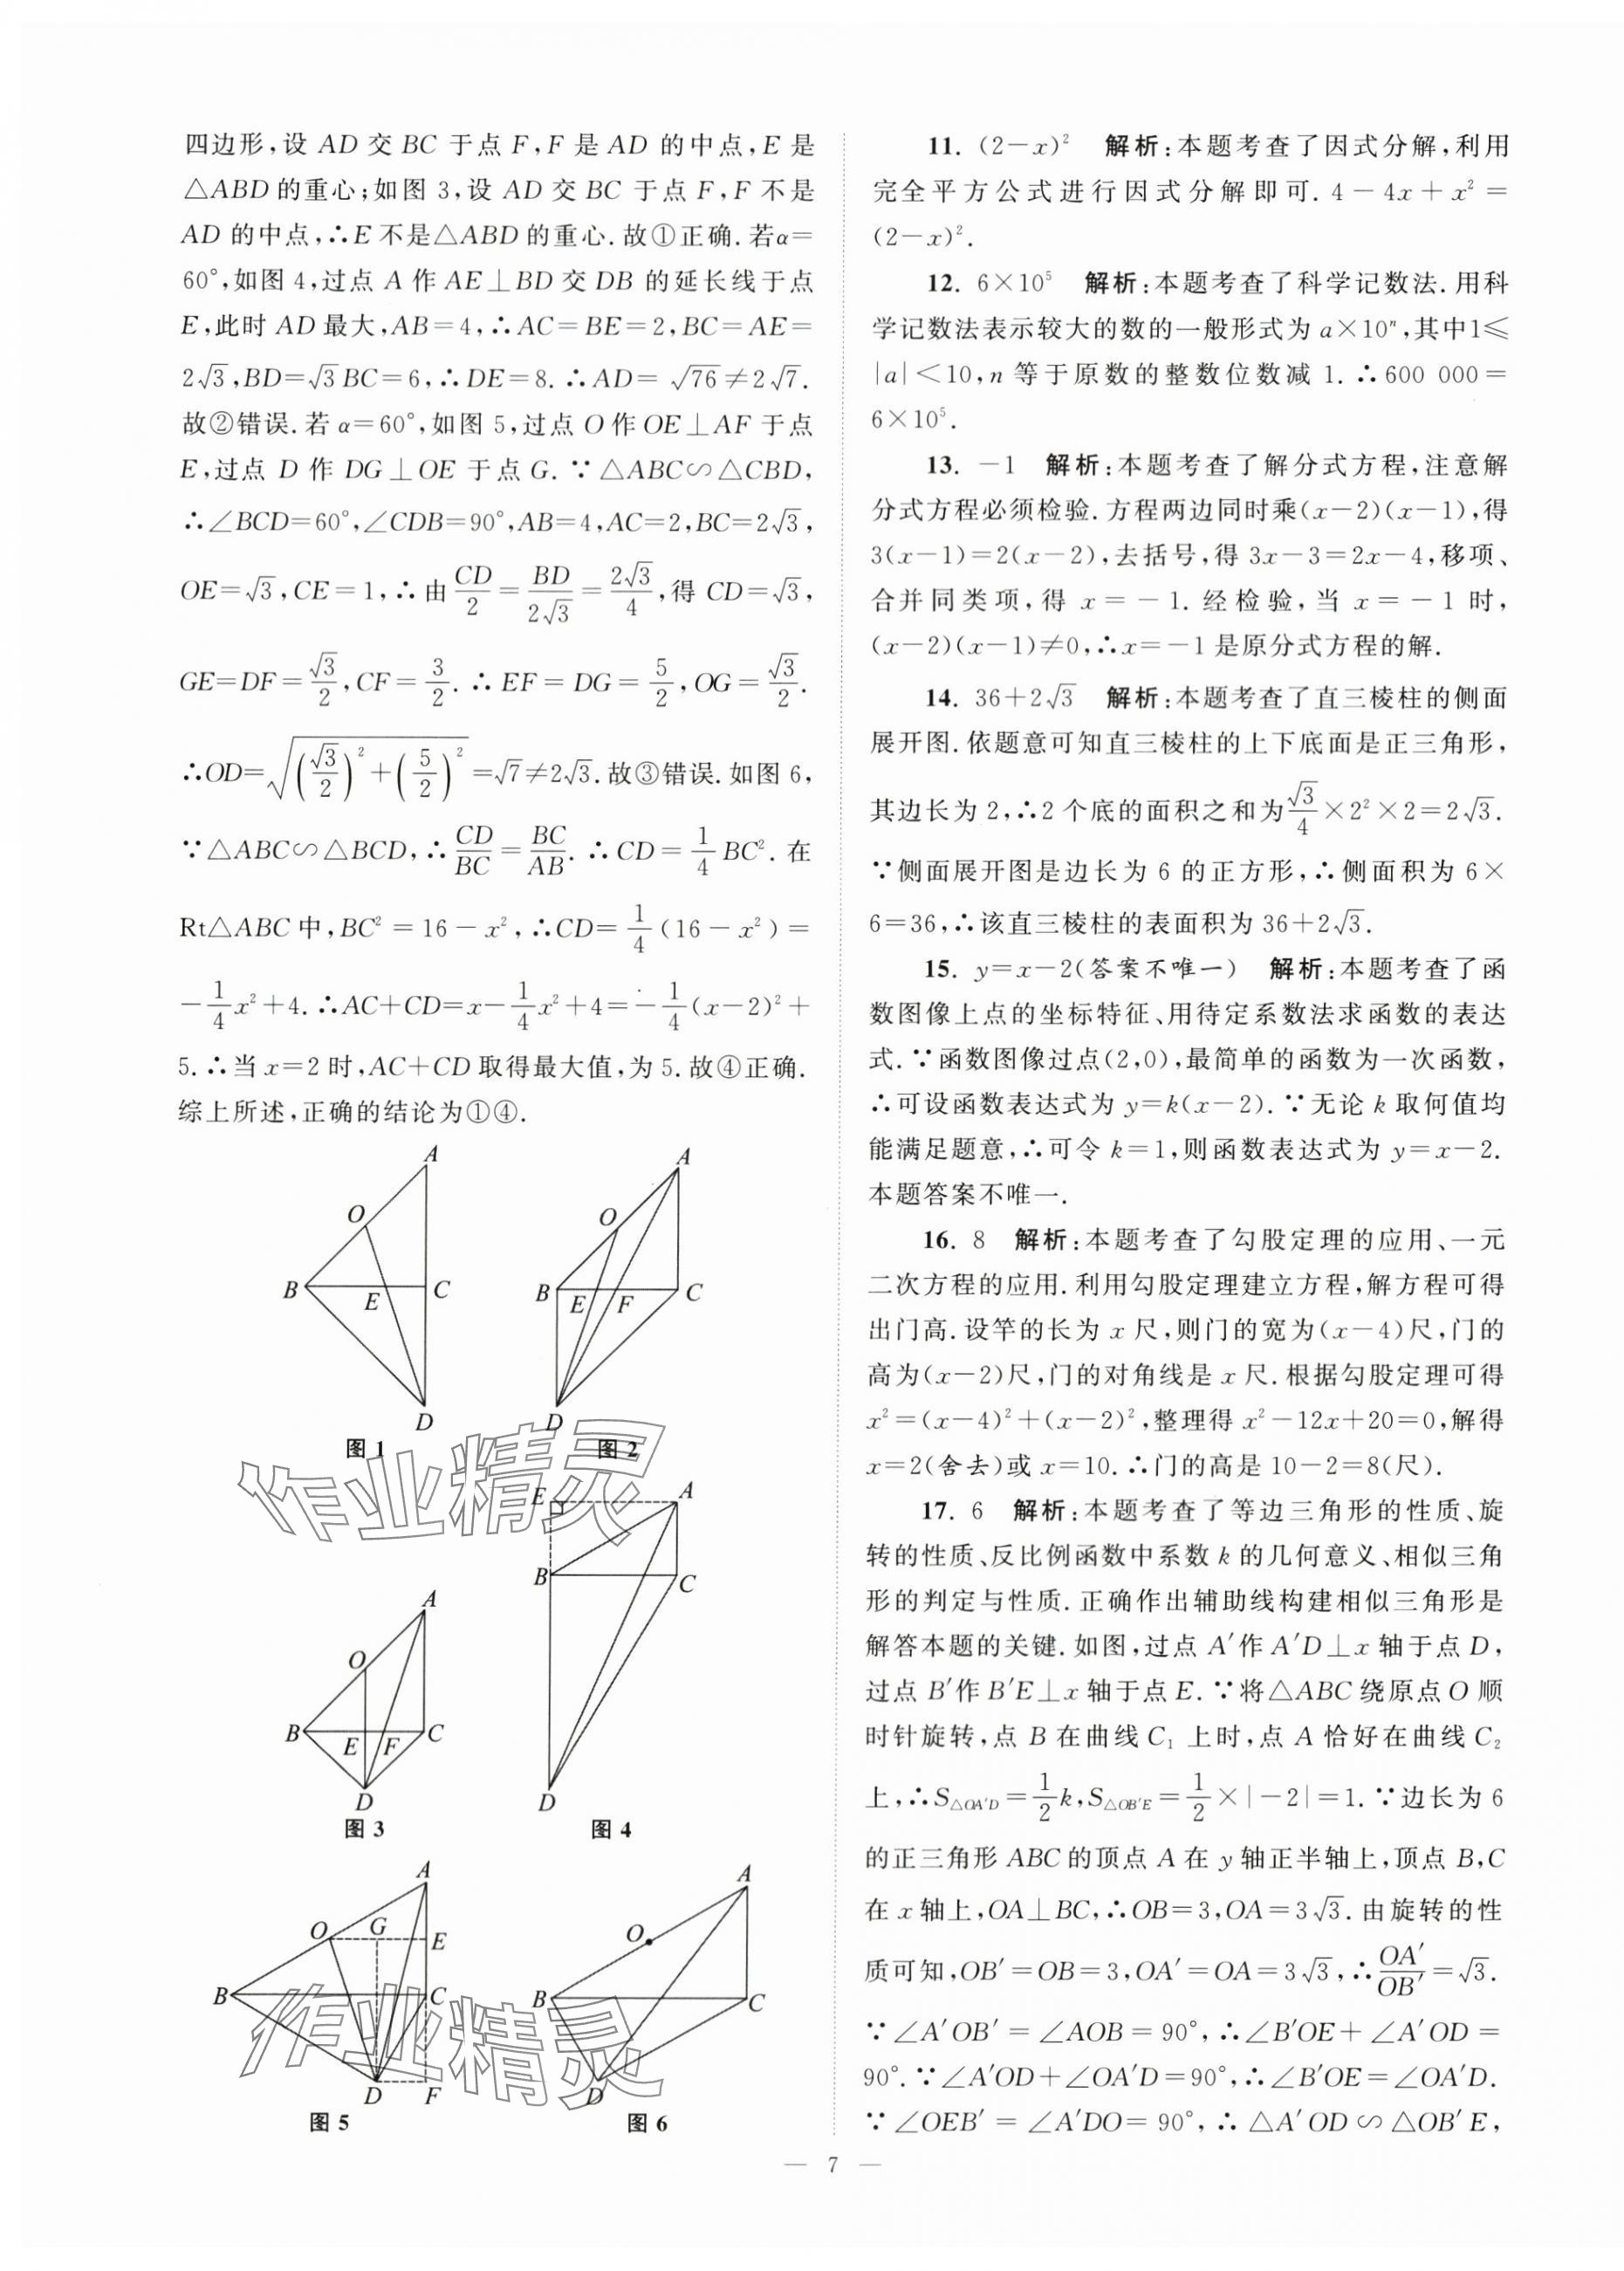 四边形,设 AD 交 BC 于点 F,F 是 AD 的中点,E 是
△ABD 的重心;如图 3,设 AD 交 BC 于点 F,F 不是
AD 的中点,∴E 不是△ABD 的重心.故①正确.若α=
60°,如图 4,过点 A 作 AE⊥BD 交 DB 的延长线于点
E,此时 AD 最大,AB=4,∴AC=BE=2,BC=AE=
2√3,BD=√3BC=6,∴DE=8.∴AD=√76≠2√7.
故②错误.若 α=60°,如图 5,过点 O 作 OE⊥AF 于点
E,过点 D 作 DG⊥OE 于点 G.∵△ABC∽△CBD,
∴∠BCD=60°,∠CDB=90°,AB=4,AC=2,BC=2√3,
OE=√3,CE=1,∴由 CD/2=BD/2√3=2√3/4,得 CD=√3,
GE=DF=√3/2,CF=3/2.∴EF=DG=5/2,OG=√3/2.
∴OD=√((√3/2)²+(5/2)²)=√7≠2√3.故③错误.如图 6,
∵△ABC∽△BCD,∴CD/BC=BC/AB.∴CD=1/4 BC².在
Rt△ABC 中,BC²=16-x²,∴CD=1/4(16-x²)=
-1/4x²+4.∴AC+CD=x-1/4x²+4=-1/4(x-2)²+
5.∴当 x=2 时,AC+CD 取得最大值,为 5.故④正确.
综上所述,正确的结论为①④.
A
O
B
E
C
D
图 1
A
O
B
E
F
C
D
图 2
A
O
B
E
F
C
D
图 3
E
A
B
C
D
图 4
A
O
G
E
B
C
D
F
图 5
A
O
B
C
D
图 6
作业精灵
作业精灵
11. (2-x)² 解析:本题考查了因式分解,利用
完全平方公式进行因式分解即可.4-4x+x²=
(2-x)².
12. 6×10⁵ 解析:本题考查了科学记数法.用科
学记数法表示较大的数的一般形式为 a×10ⁿ,其中1≤
|a|<10,n 等于原数的整数位数减 1.∴600 000=
6×10⁵.
13. -1 解析:本题考查了解分式方程,注意解
分式方程必须检验.方程两边同时乘(x-2)(x-1),得
3(x-1)=2(x-2),去括号,得 3x-3=2x-4,移项、
合并同类项,得 x=-1.经检验,当 x=-1 时,
(x-2)(x-1)≠0,∴x=-1 是原分式方程的解.
14. 36+2√3 解析:本题考查了直三棱柱的侧面
展开图.依题意可知直三棱柱的上下底面是正三角形,
其边长为 2,∴2 个底的面积之和为√3/4×2²×2=2√3.
∵侧面展开图是边长为 6 的正方形,∴侧面积为 6×
6=36,∴该直三棱柱的表面积为 36+2√3.
15. y=x-2(答案不唯一) 解析:本题考查了函
数图像上点的坐标特征、用待定系数法求函数的表达
式.∵函数图像过点(2,0),最简单的函数为一次函数,
∴可设函数表达式为 y=k(x-2).∵无论 k 取何值均
能满足题意,∴可令 k=1,则函数表达式为 y=x-2.
本题答案不唯一.
16. 8 解析:本题考查了勾股定理的应用、一元
二次方程的应用.利用勾股定理建立方程,解方程可得
出门高.设竿的长为 x 尺,则门的宽为(x-4)尺,门的
高为(x-2)尺,门的对角线是 x 尺.根据勾股定理可得
x²=(x-4)²+(x-2)²,整理得 x²-12x+20=0,解得
x=2(舍去)或 x=10.∴门的高是 10-2=8(尺).
17. 6 解析:本题考查了等边三角形的性质、旋
转的性质、反比例函数中系数 k 的几何意义、相似三角
形的判定与性质.正确作出辅助线构建相似三角形是
解答本题的关键.如图,过点 A′作 A′D⊥x 轴于点 D,
过点 B′作 B′E⊥x 轴于点 E.∵将△ABC 绕原点 O 顺
时针旋转,点 B 在曲线 C₁ 上时,点 A 恰好在曲线 C₂
上,∴S△OA′D=1/2k,S△OB′E=1/2×|-2|=1.∵边长为 6
的正三角形 ABC 的顶点 A 在 y 轴正半轴上,顶点 B,C
在 x 轴上,OA⊥BC,∴OB=3,OA=3√3.由旋转的性
质可知,OB′=OB=3,OA′=OA=3√3,∴OA′/OB′=√3.
∵∠A′OB′=∠AOB=90°,∴∠B′OE+∠A′OD=
90°.∵∠A′OD+∠OA′D=90°,∴∠B′OE=∠OA′D.
∵∠OEB′=∠A′DO=90°,∴△A′OD∽△OB′E,
— 7 —